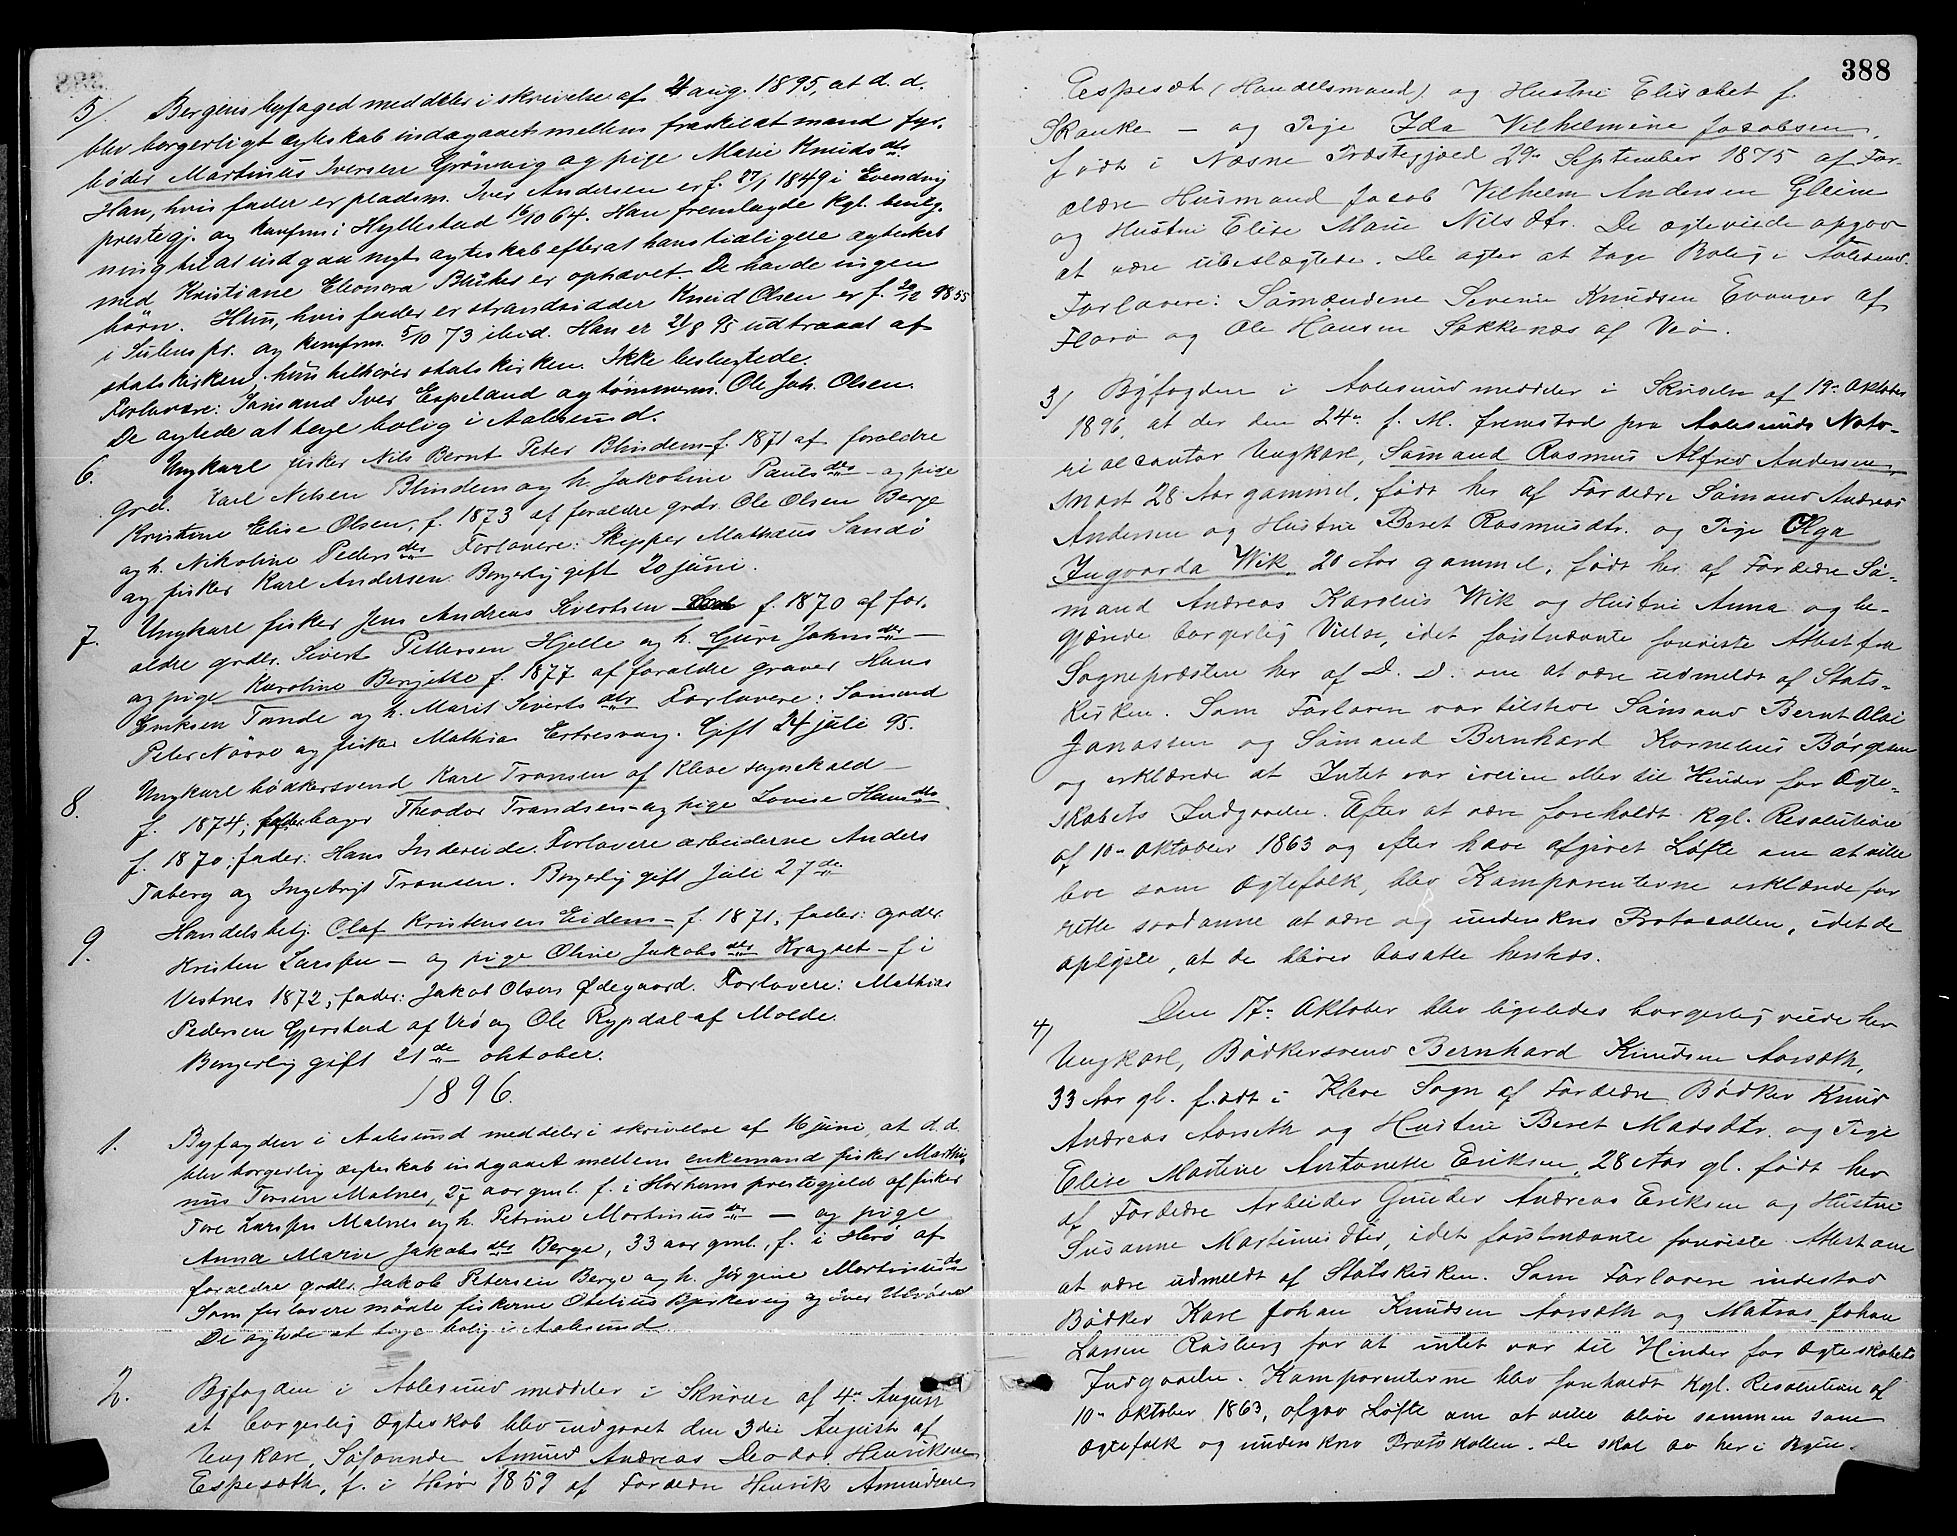 5/. Bergens byfoged meddeler i skrivelse af 21 aug. 1895, at d. d.
blev borgerligt ægteskab indgaaet mellem fraskilat mand fyr-
bøder Martinus Iversen Grönvig og pige Marie Knudsdtr
Han, hvis fader er pladsm. Iver Andersen er f. 27/1 1849 i Evendvig
prestegj. og konfirm i Hyllestad 16/10 64. Han fremlagde kgl. bevilg-
ning til at indgaa nyt ægteskab efterat hans tidligere ægteskab
med Kristiane Eleonora er ophævet. De havde ingen
børn. Hun, hvis fader er strandsidder Knud Olsen er f. 20/12 1855
i Sulens pr. og konfirm. 5/10 73 ibid. Han er 21/8 95 udtraadt af
statskirken; hun tilhører statskirken. Ikke beslegtede.
Forlovere: Sömand Iver Espeland og tömmerm. Ole Joh. Olsen.
De agtede at tage bolig i Aalesund.
6. Ungkarl fisker Nils Bernt Peter Blindem f. 1871 af foraldre
grd. Karl Nilsen Blindem og h. Jakobine Paulsdtr – og pige
Kristine Elise Olsen, f. 1873 af foraldre grdr. Ole Olsen Berge
og h. Nikoline Pedersdtr Forlovere: Skipper Mathæus Sandö
og fisker Karl Andersen. Borgerlig gift 20 juni.
7. Ungkarl fisker Jens Andreas Sivertsen f. 1870 af for-
aldre grdr. Sivert Pettersen Hjelle og h. Guri Johnsdtr –
og pige Karoline Bergitte f. 1877 af foraldre graver Hans
Eriksen Tande og h. Marit Sivertsdtr Forlovere: Sömand
Peter Nörve og fisker Mathias Ertresvaag. Gift 24 juli 95.
8. Ungkarl bödkersvend Karl Transen af Kleve sognekald –
f. 1874; fader bager Theodor Trandsen – og pige Lovise Hansdtr
f. 1870; fader: Hans Indereide. Forlovere arbeiderne Anders
Taberg og Ingebrigt Transen. Borgerlig gift Juli 27de
9. Handelsbetj. Olaf Kristensen Eidem – f. 1871, fader: grdr.
Kristen Larssen – og pige Oline Jakobsdtr Kragset – f i
Vestnes 1872; fader: Jakob Olsen Ødegaard. Forlovere: Mathias
Pedersen Gjerstad af Veö og Ole Rypdal af Molde.
Borgerlig gift 21de oktober.
1896.
1. Byfogden i Aalesund meddeler i skrivelse af 16 juni, at d. d.
blev borgerlig ægteskab indgaaet mellem enkemand fisker Marthi-
nus Toresen Malnes, 27 aar gml. f. i Horhams prestegjeld af fisker
Tore Larssen Malnes og h. Petrine Martinusdtr – og pige
Anna Marie Jakobsdtr Berge, 33 aar gml., f. i Herø af
foraldre grdr. Jakob Petersen Berge og h. Jörgine Martinusdtr
Som forlovere mödte fiskerne Otelius Bjerkevig og Iver
De agtede at tage bolig i Aalesund.
2. Byfogden i Aalesund meddeler i Skrivelse af 4de August
at borgerlig Ægteskab blev indgaaet den 3die August af
Ungkarl, Söfarende Amund Andreas Henriksen
Espesæth, f. i Herø 1859 af Forældre Henrik Amundsen
388
Espesæt (Handelsmand) og Hustru Elisabet f.
Skanke – og Pige Ida Vilhelmine Jacobsen,
født i Næsne Præstegjæld 29de September 1875 af For-
ældre Husmand Jacob Vilhelm Andersen Glein
og Hustru Elise Marie Nilsdtr. De ægteviede opgav
at være ubeslægtede. De agter at tage Bolig i Aalesund.
Forlovere: Sömændene Severin Knudsen Evanger af
Florö og Ole Hansen Sekkenæs af Veö.
3/ Byfogden i Aalesund meddeler i Skrivelse af 19de Oktober
1896, at der den 24de f. M. fremstod paa Aalesunds Noto-
rialcontor Ungkarl, Sömand Rasmus Alfred Andersen
snart 28 Aar gammel, født her af Forældre Sömand Andreas
Andersen og Hustru Beret Rasmusdtr. og Pige Olga
Ingvarda Wik, 20 Aar gammel, født her af Forældre Sö-
mand Andreas Karolius Wik og Hustru Anna og be-
gjærede borgerlig Vielse, idet førstnævnte foreviste Attest fra
Sognepræsten her af D. D. om at være udmeldt af Stats-
kirken. Som Forlovere var tilstede Sömand Bernt Olai
Jonassen og Sömand Bernhard Kornelius Börgesen
og erklærede at Intet var iveien eller til Hinder for Ægte-
skabets Indgaaelse. Efter at være foreholdt Kgl. Resolution
af 10de Oktober 1863 og efter have afgivet Løfte om at ville
leve som Ægtefolk, blev Komparenterne erklærede for
rette saadanne at være og underskrev Protocollen, idet de
oplyste, at de bliver bosatte herhos.
4/ Den 17de Oktober blev ligeledes borgerlig viede her
Ungkarl, Bödkersvend Bernhard Knudsen Aarsæth,
33 Aar gl. født i Kleve Sogn af Forældre Bödker Knud
Andreas Aarseth og Hustru Beret Madsdtr. og Pige
Elise Martine Antonette Eriksen, 28 Aar gl. født her
af Forældre Arbeider Gunder Andreas Eriksen og Hustru
Susanne Martinusdtr, idet førstnævnte foreviste Attest om
at være udmeldt af Statskirken. Som Forlovere indestod
Bödker Karl Johan Knudsen Aarsæth og Matros Johan
Larsen Rasberg for at intet var til Hinder for Ægteskabets
Indgaaelse. Komparenterne blev foreholdt Kgl. Resolution af
10de Oktober 1863, afgav Løfte om at ville leve sammen som
Ægtefolk og underskrev Protokollen. De skal bo her i Byen.